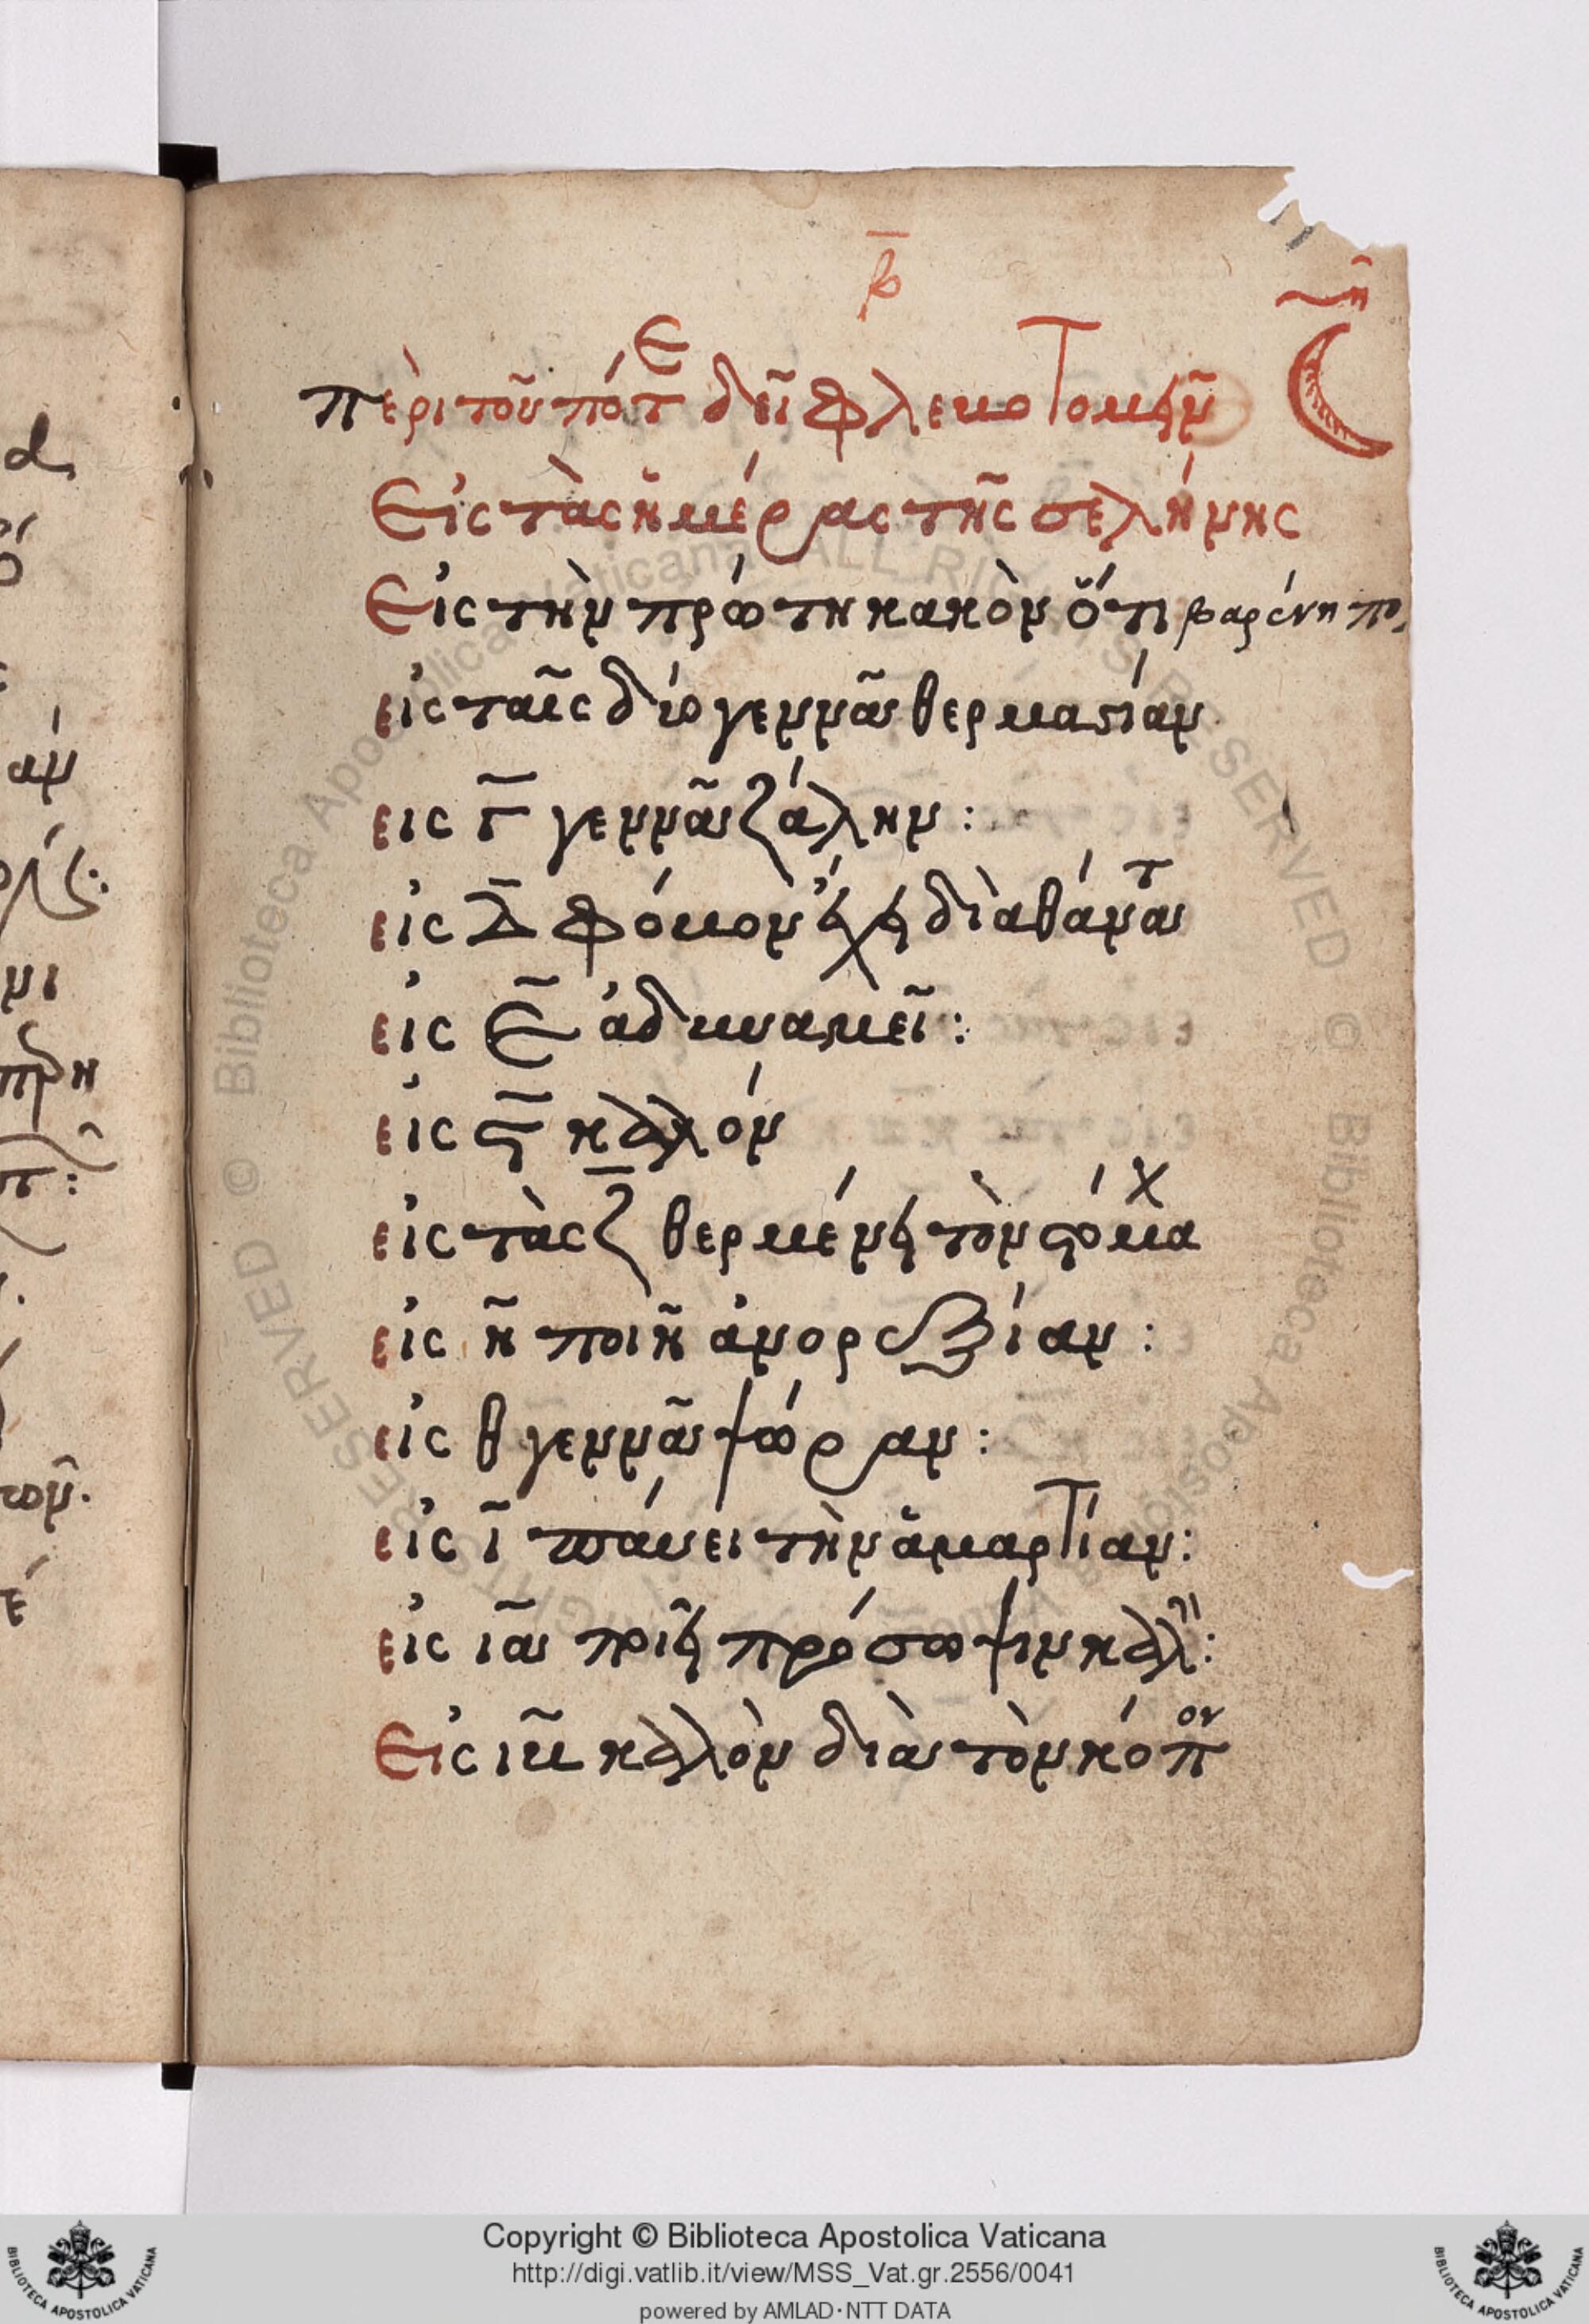 β
περὶ τοῦ πότε δεῖ φλεβοτομεῖν
Εἰς τὰς ἡμέρας τῆς σελήνης
Εἰς τὴν πρώτη κακὸν ὅτι βαρένη
εἰς ταῖς δύο γεννᾶ θερμασίαν
εἰς γ γεννᾶ ζάλην :
εἰς δ φόβον ἔχει διὰ θάνατ
εἰς ε ἀδυναμεῖ :
εἰς ϛ καλόν
εἰς τὰς ζ θερμένει τὸν στόμαχ
εἰς η ποιῆ ἀνορεξίαν :
εἰς θ γεννᾶ ψώραν :
εἰς ι παύει τὴν ἁμαρτίαν :
εἰς ια ποιεῖ πρόσωψιν καλ :
Εἰς ιβ καλὸν διὰ τὸν κόπον
Copyright © Biblioteca Apostolica Vaticana
http://digi.vatlib.it/view/MSS_Vat.gr.2556/0041
powered by AMLAD·NTT DATA